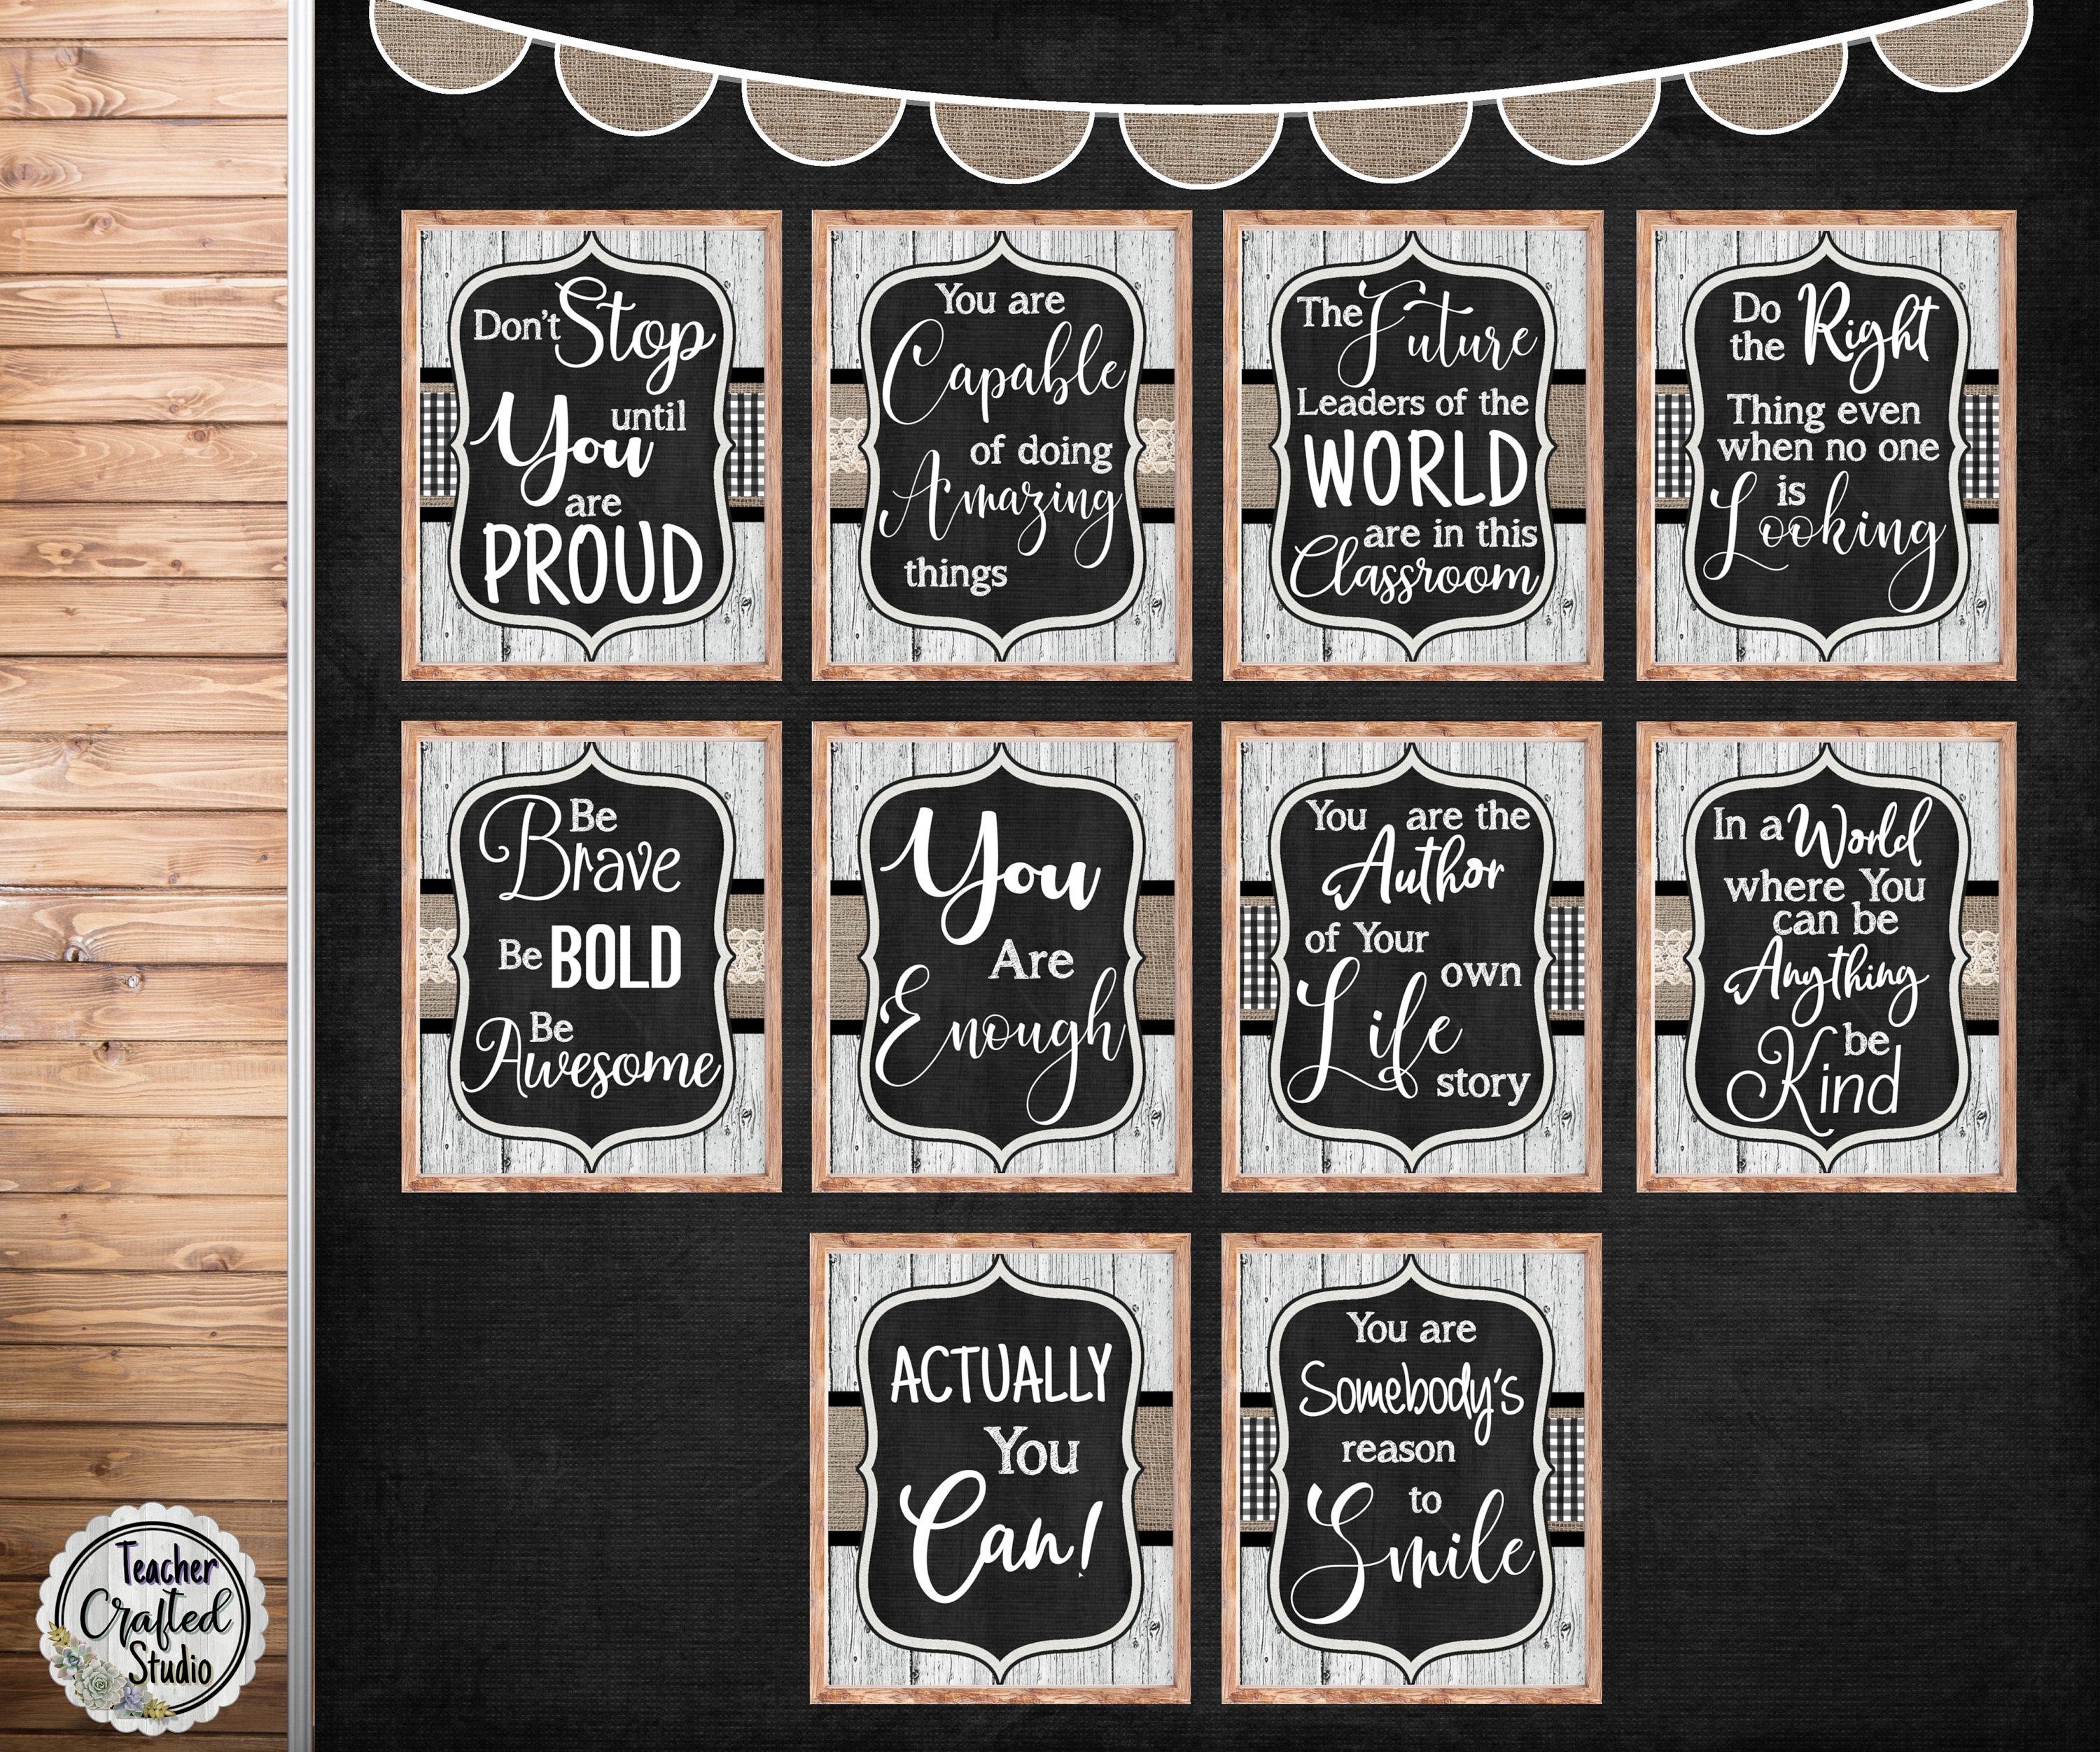 Don't Stop
until
You
are
PROUD
You are
Capable
of doing
Amazing
things
The Future
Leaders of the
WORLD
are in this
Classroom
Do
the Right
Thing even
when no one
is
Looking
Be
Brave
Be BOLD
Be
Awesome
You
Are
Enough
You are the
Author
of Your
own
Life
story
In a World
where You
can be
Anything
be
Kind
ACTUALLY
You
Can!
You are
Somebody's
reason
to
Smile
Teacher
Crafted
Studio